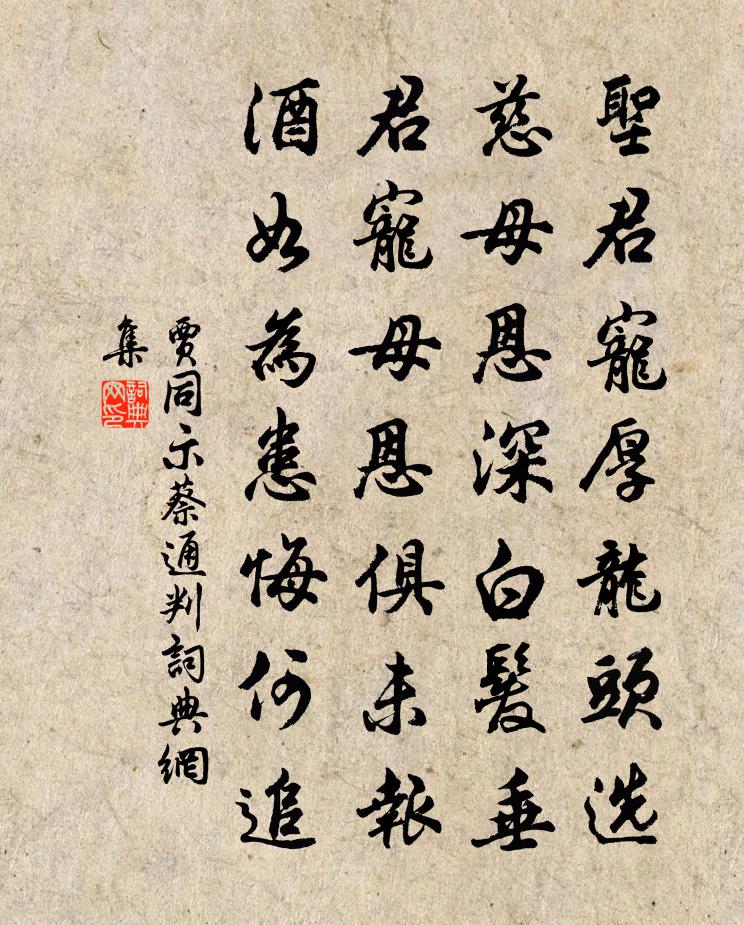 聖君寵厚龍頭选
慈母恩深白髮垂
君寵母恩俱未報
酒如為患悔何追
賈同示蔡通判詞典網
集
詞典
网印